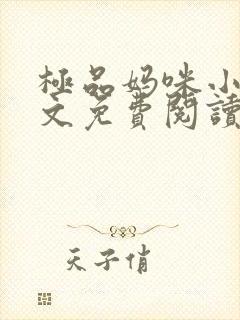 極品妈咪小
文免費閱讀
天子俏